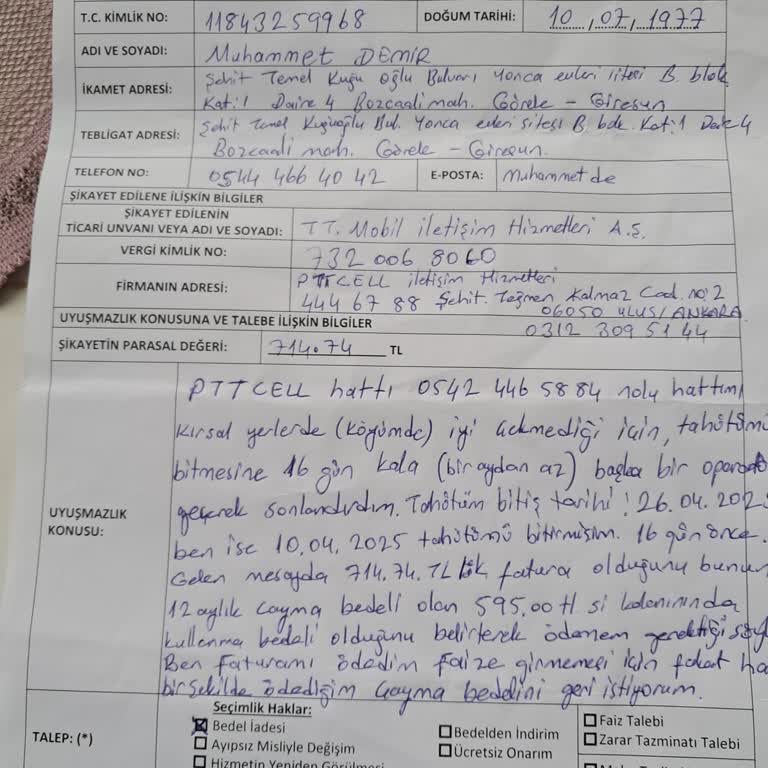 T.C. KİMLİK NO: 11843259968 DOĞUM TARİHİ: 10.,07,1977
ADI VE SOYADI: Muhammet DEMİR
İKAMET ADRESİ: Şehit Temel Kuğu Oğlu Bulvarı Yonca evleri sitesi B. blok
Kat:1 Daire 4 Bozcaali mah. Görele - Giresun
TEBLİGAT ADRESİ: Şehit Temel Kuğuoğlu Bul. Yonca evleri sitesi B. blok. Kat:1 Daire 4
Bozcaali mah. Görele - Giresun.
TELEFON NO: 0544 466 40 42 E-POSTA: muhammet de
ŞİKAYET EDİLENE İLİŞKİN BİLGİLER
ŞİKAYET EDİLENİN
TİCARİ UNVANI VEYA ADI VE SOYADI: TT. Mobil iletişim Hizmetleri A.Ş.
VERGİ KİMLİK NO: 732 006 8060
FİRMANIN ADRESİ: PTTCELL iletişim Hizmetleri
444 67 88 Şehit. Teğmen Kalmaz Cad. no: 2
06050 ULUS/ANKARA
UYUŞMAZLIK KONUSUNA VE TALEBE İLİŞKİN BİLGİLER 0312 309 51 44
ŞİKAYETİN PARASAL DEĞERİ: 714.74 TL
UYUŞMAZLIK KONUSU:
PTTCELL hattı 0542 446 5884 nolu hattım,
Kırsal yerlerde (köyümde) iyi çekmediği için, tahütümü
bitmesine 16 gün kala (bir aydan az) başka bir oparatö
geçerek sonlandırdım. Tahütüm bitiş tarihi! 26.04.202
ben ise 10.04.2025 tahütümü bitirmişim. 16 gün önce.
Gelen mesajda 714.74.TL lik fatura olduğunu bunun
12 aylık cayma bedeli olan 595.00 tl si kalanınında
kullanma bedeli olduğunu belirterek ödemem gerektiği söy
Ben faturamı ödedim faize girmemesi için fakat ha
bir şekilde ödediğim cayma bedelini geri istiyorum.
TALEP: (*)
Seçimlik Haklar:
Bedel İadesi
Ayıpsız Misliyle Değişim
Hizmetin Yeniden Görülmesi
Bedelden İndirim
Ücretsiz Onarım
Faiz Talebi
Zarar Tazminatı Talebi